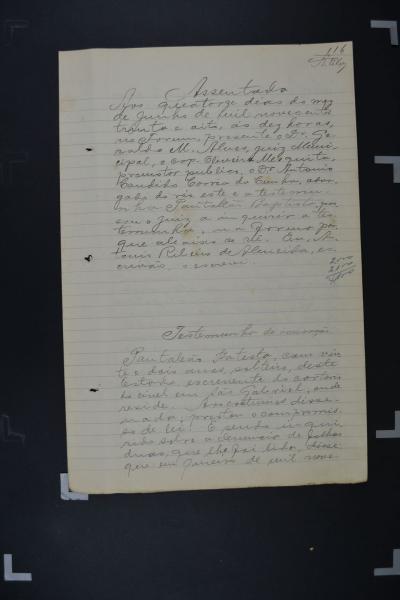 116
Assentada
Aos quatorze dias do mez
de Junho de mil novecentos
trinta e oito, ás dez horas,
no Forum, presente o Dr. Ge-
raldo M. Alves, juiz Muni-
cipal, o cop. Oliveira Mesquita,
promotor publico, o Dr. Antonio
Candido Correa da Cunha, advo-
gado do réo este e a testemu-
nha Pantaleão Baptista, pas-
sou o juiz a inquirir a tes-
temunha, na forma por
que abaixo se vê. Eu, An-
tonio Ribeiro de Almeida, es-
crivão, o escrevi.
Testemunha de accusação
Pantaleão Batista, com vin
te e dois annos, solteiro, deste
estado, escrevente do cartorio
do civel em São Gabriel, onde
reside. Aos costumes disse
nada; prestou o compromis-
so de lei. E sendo inqui-
rido sobre a denuncia de folhas
duas, que lhe foi lida, disse
que em Janeiro de mil nove-